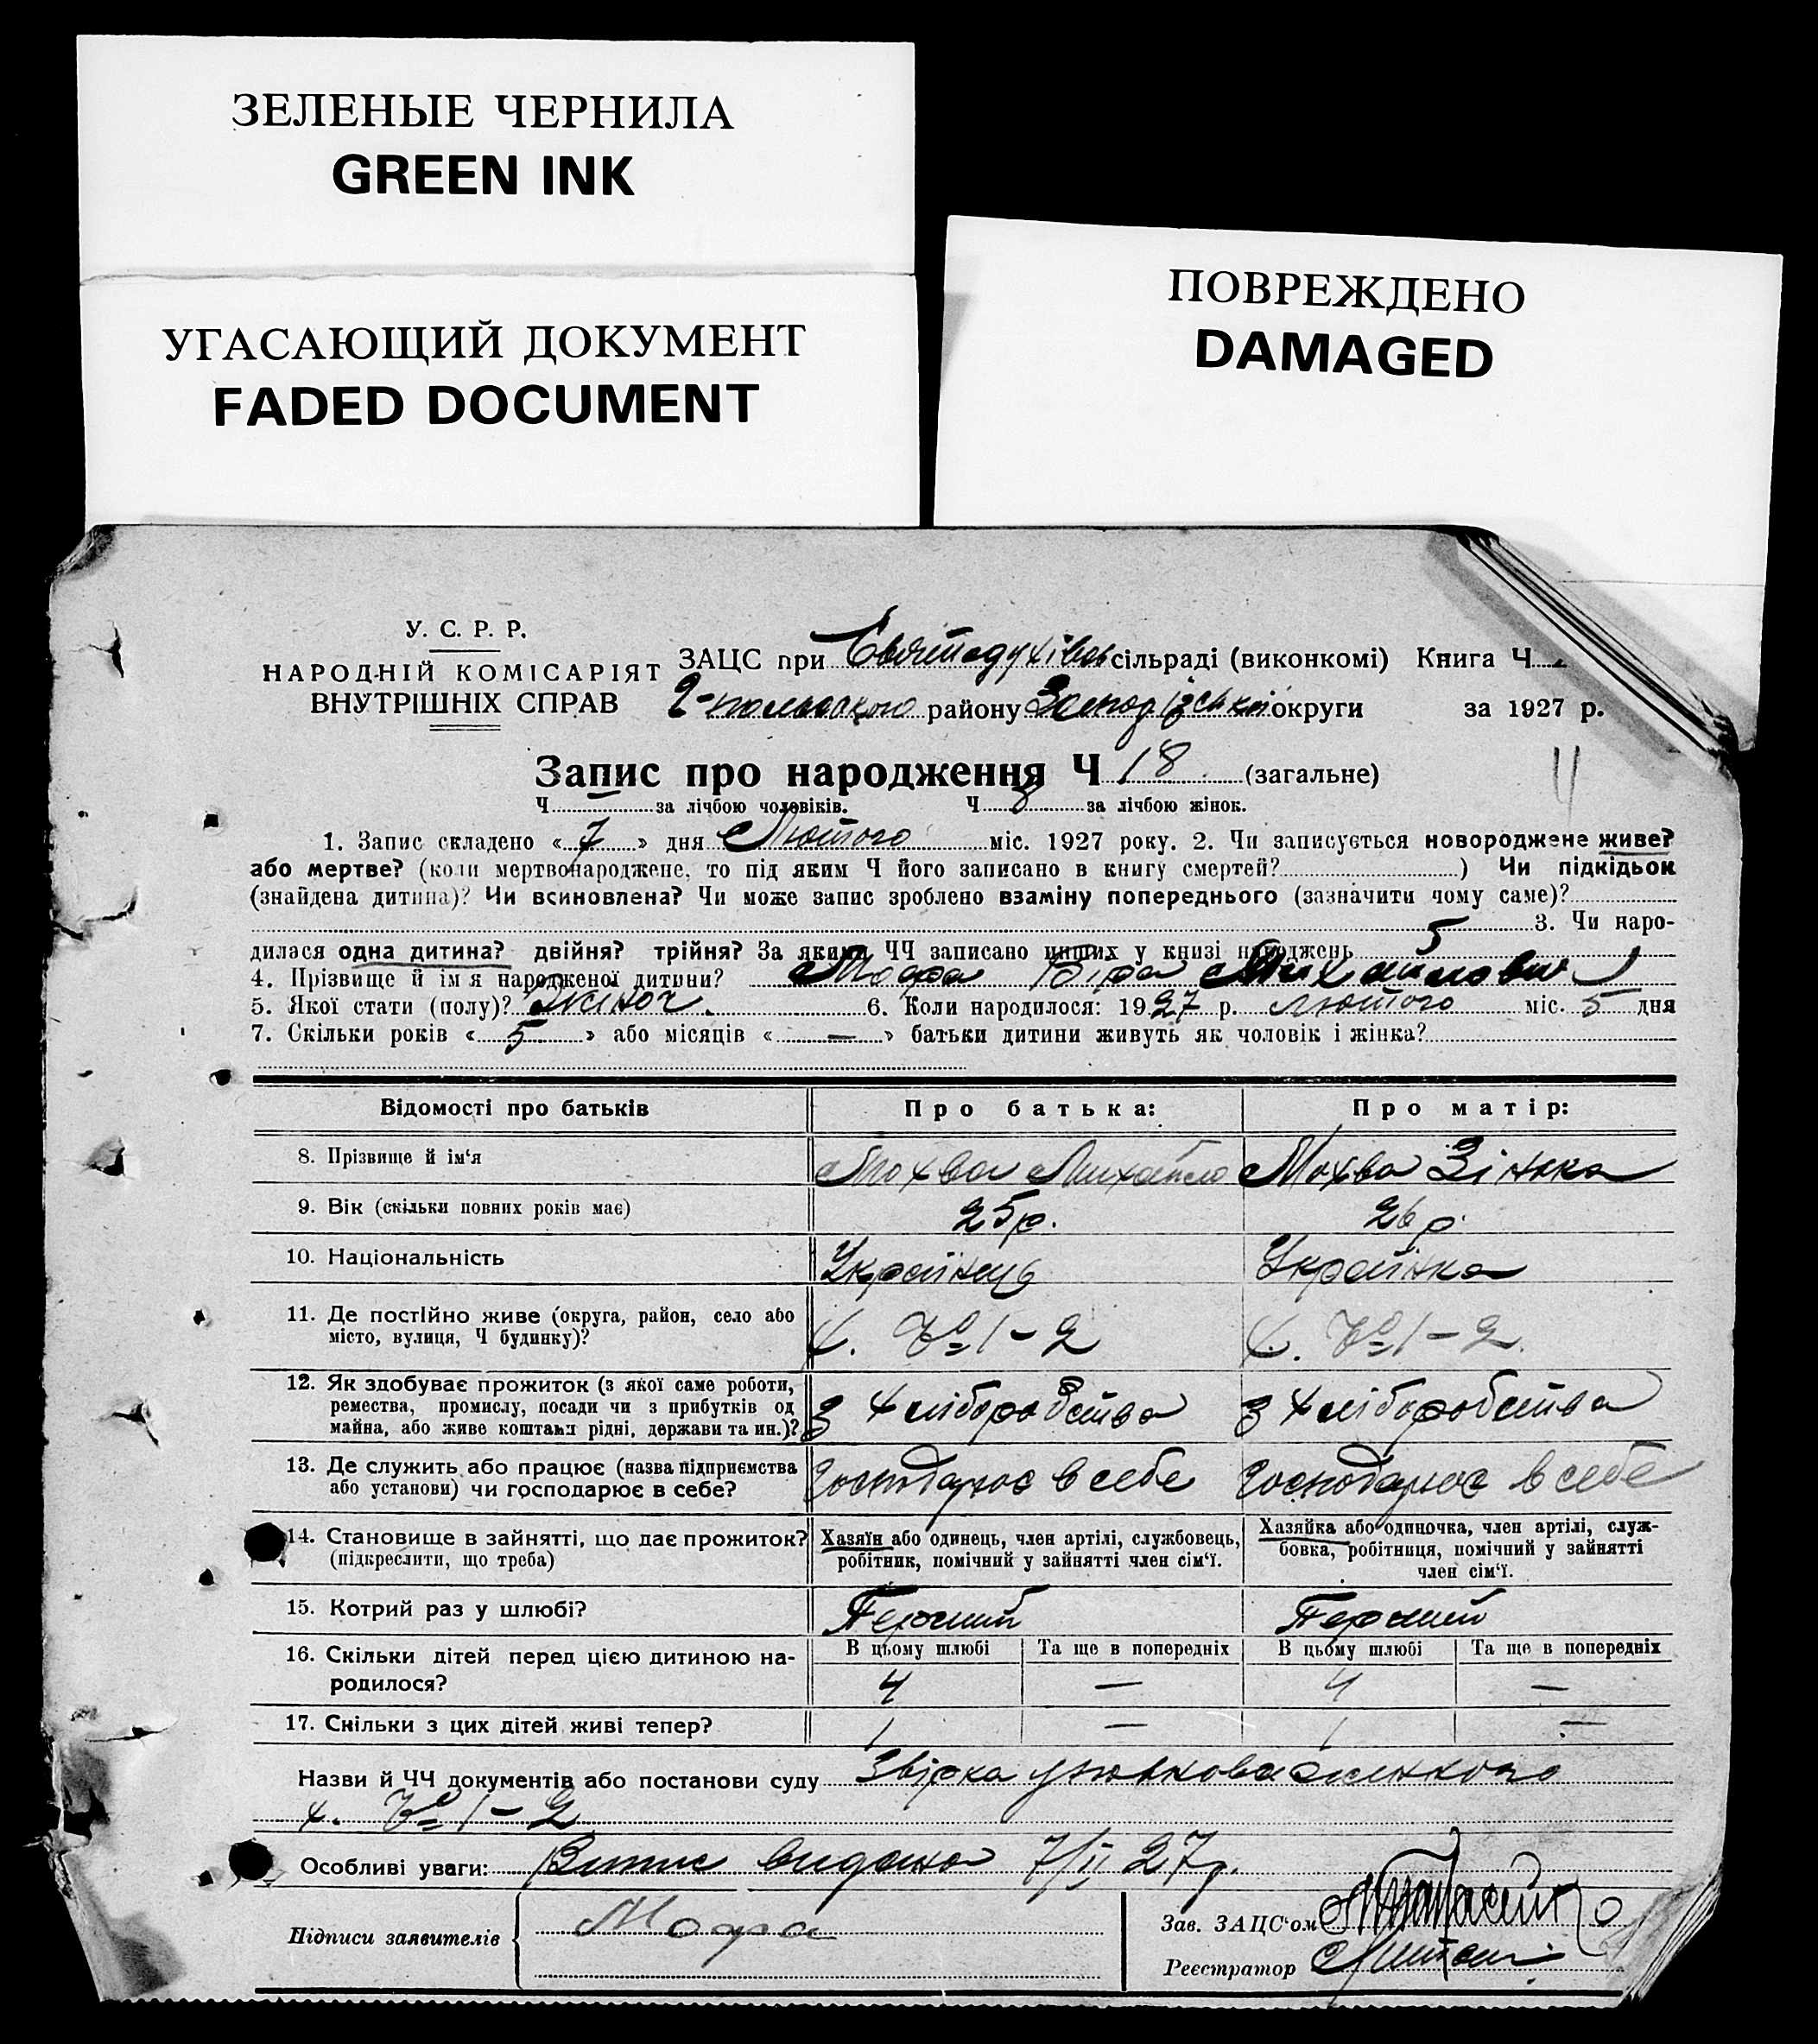 ЗЕЛЕНЫЕ ЧЕРНИЛА
GREEN INK
УГАСАЮЩИЙ ДОКУМЕНТ
FADED DOCUMENT
ПОВРЕЖДЕНО
DAMAGED
У. С. Р. Р.
НАРОДНІЙ КОМІСАРІЯТ
ВНУТРІШНІХ СПРАВ
ЗАЦС при Святодухівс сільраді (виконкомі) Книга Ч
району Запорізської округи за 1927 р.
Запис про народження Ч 18 (загальне)
4
Ч — за лічбою чоловіків. Ч 8 за лічбою жінок.
1. Запис складено « 7 » дня Лютого міс. 1927 року. 2. Чи записується новороджене живе?
або мертве? (коли мертвонароджене, то під яким Ч його записано в книгу смертей? ) Чи підкідьок
(знайдена дитина)? Чи всиновлена? Чи може запис зроблено взаміну попереднього (зазначити чому саме)?
5 3. Чи наро-
дилася одна дитина? двійня? трійня? За якими ЧЧ записано инших у книзі народжень
4. Прізвище й ім'я народженої дитини? Мофа Віра Михайловна
5. Якої стати (полу)? Жіноч. 6. Коли народилося: 1927 р. лютого міс. 5 дня
7. Скільки років « 5 » або місяців « — » батьки дитини живуть як чоловік і жінка?
Відомості про батьків Про батька: Про матір:
8. Прізвище й ім'я Мохва Михайло Мохва Зінька
9. Вік (скільки повних років має) 25 р. 26 р.
10. Національність Українець Українка
11. Де постійно живе (округа, район, село або
місто, вулиця, Ч будинку)? х. № 1-2 х. № 1-2.
12. Як здобуває прожиток (з якої саме роботи,
ремества, промислу, посади чи з прибутків од
майна, або живе коштами рідні, держави та ин.)? З хліборобства З хліборобства
13. Де служить або працює (назва підприємства
або установи) чи господарює в себе? Господарює в себе Господарює в себе
14. Становище в зайнятті, що дає прожиток?
(підкреслити, що треба)
Хазяїн або одинець, член артілі, службовець,
робітник, помічний у зайнятті член сім'ї.
Хазяйка або одиночка, член артілі, служ-
бовка, робітниця, помічний у зайнятті
член сім'ї.
15. Котрий раз у шлюбі? Перший Перший
16. Скільки дітей перед цією дитиною на-
родилося?
В цьому шлюбі Та ще в попередніх В цьому шлюбі Та ще в попередніх
4 — 4 —
17. Скільки з цих дітей живі тепер? 1 — 1 —
Назви й ЧЧ документів або постанови суду Звірка
х. № 1-2
Особливі уваги: Випис видано 7/II 27р.
Підписи заявителів Мофа
Зав. ЗАЦС'ом
Реєстратор